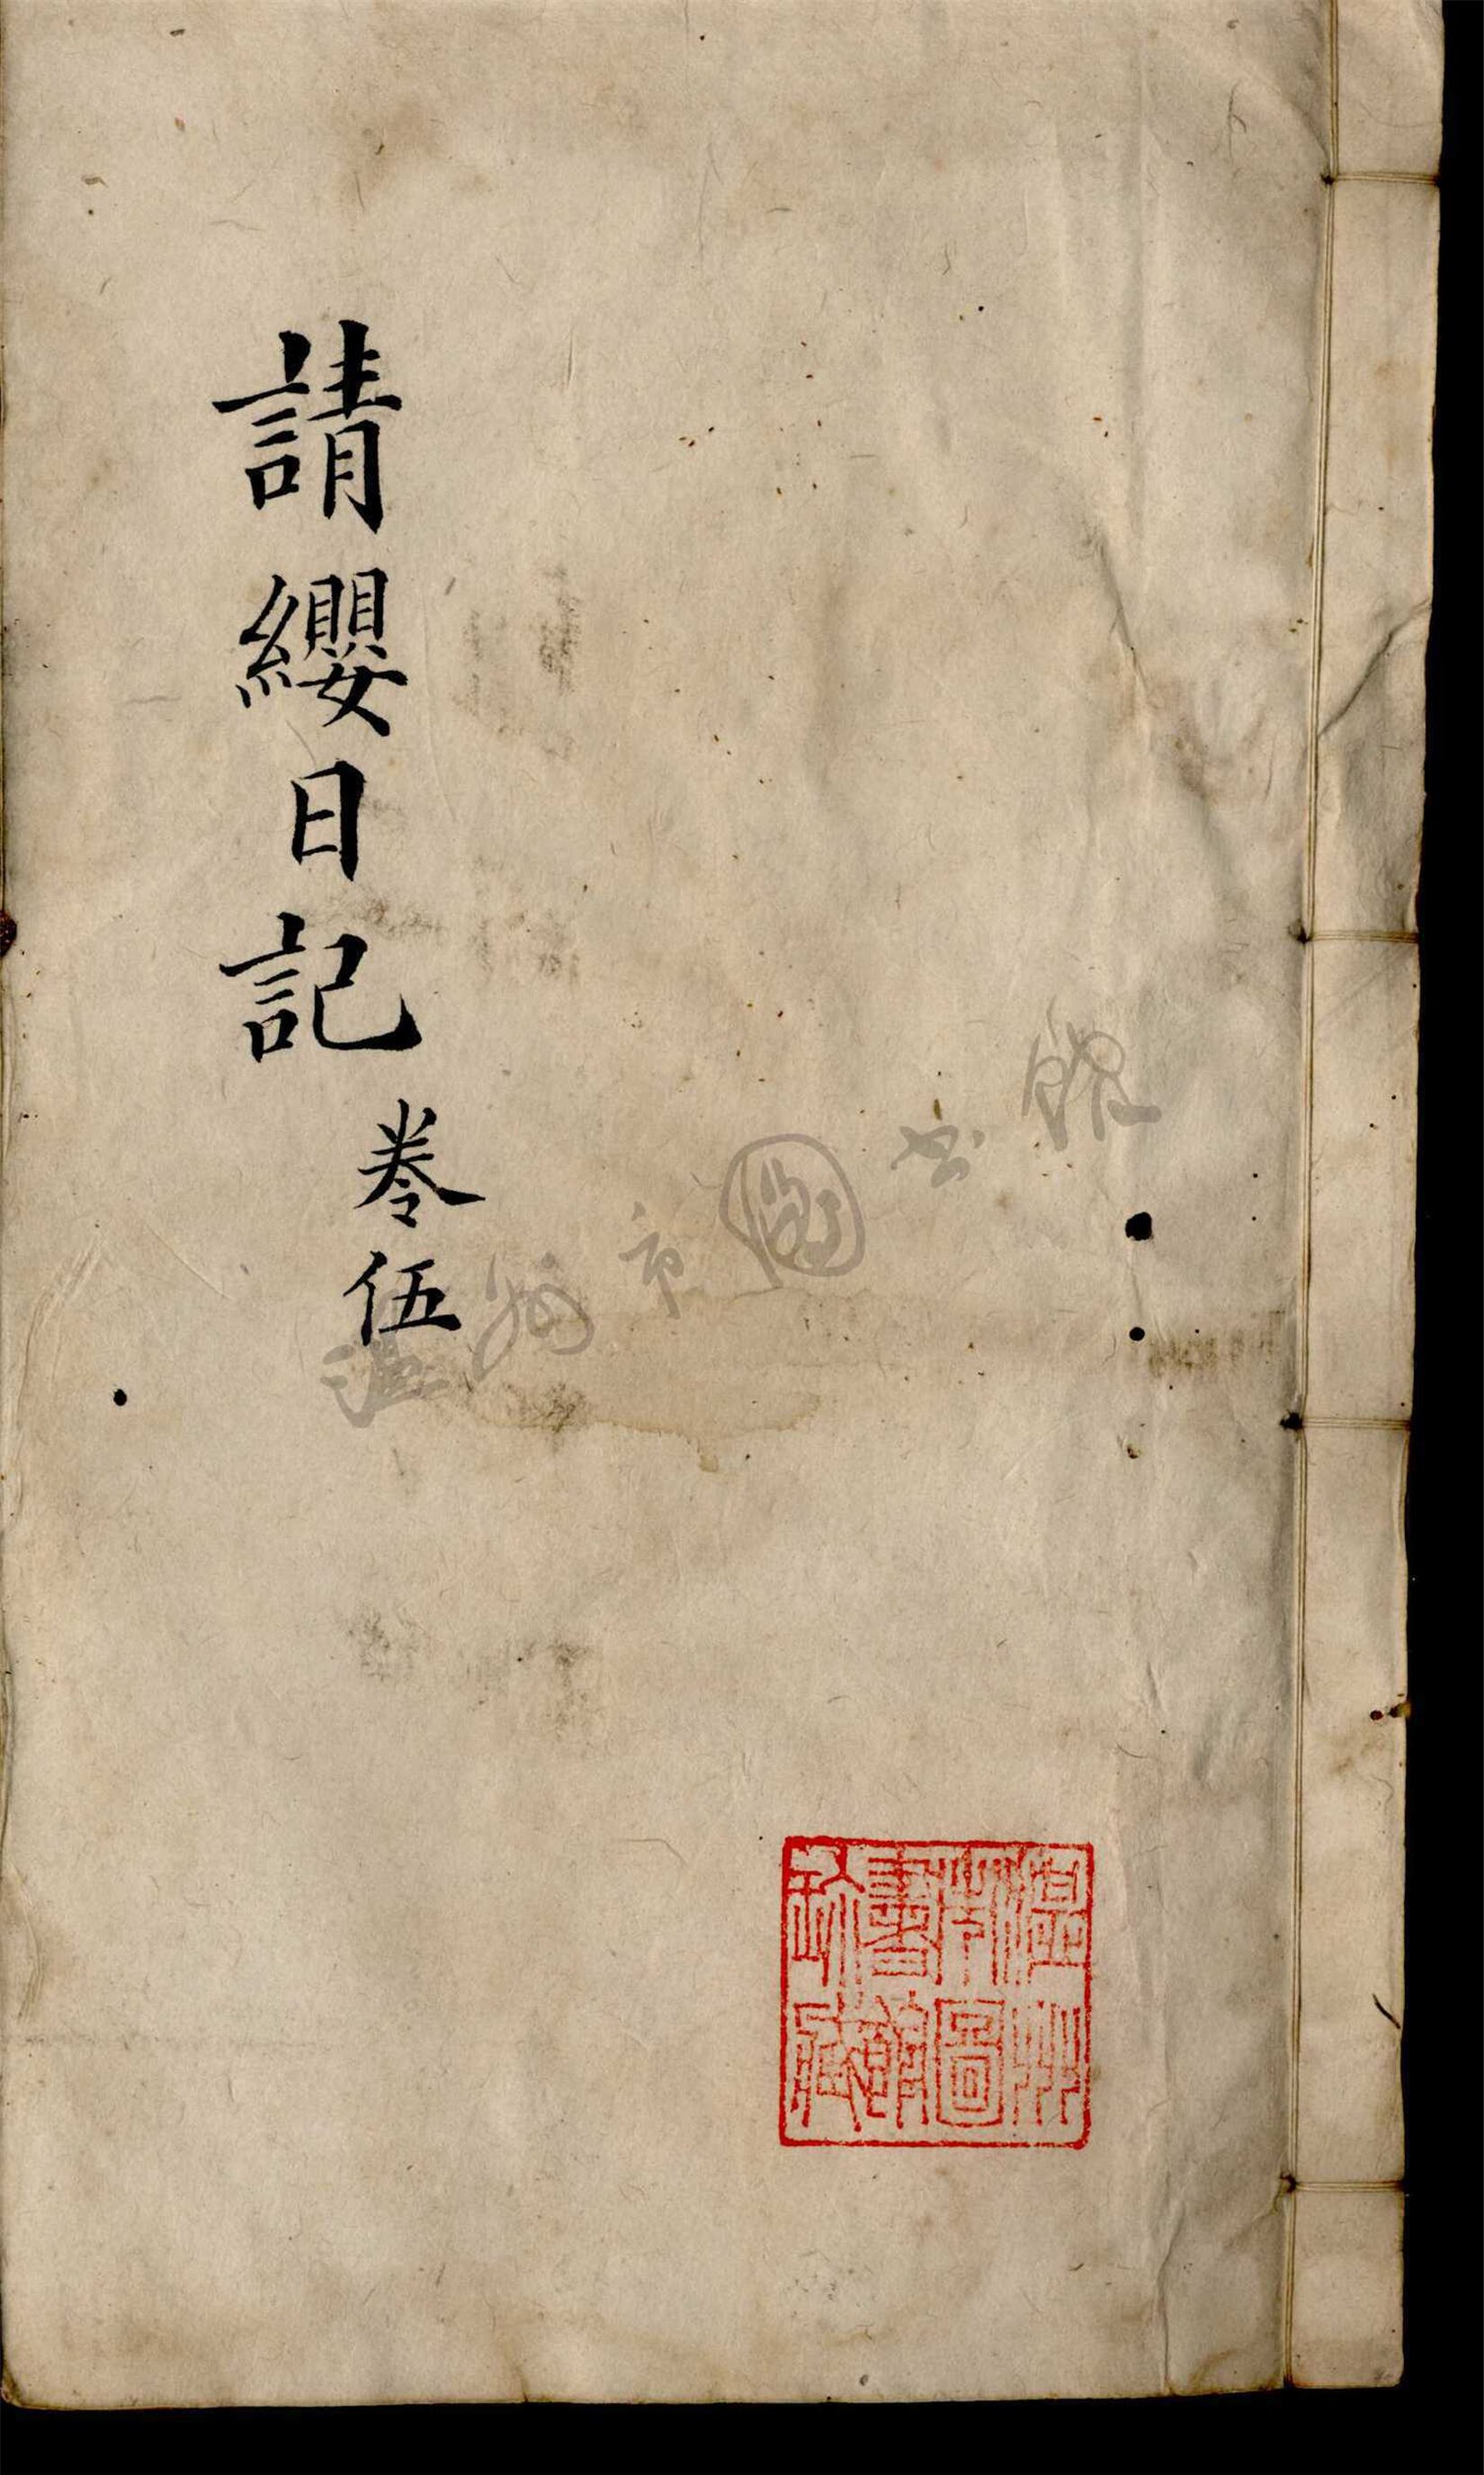 請纓日記
卷伍
溫州市圖书馆
溫州
市圖
書館
珎藏